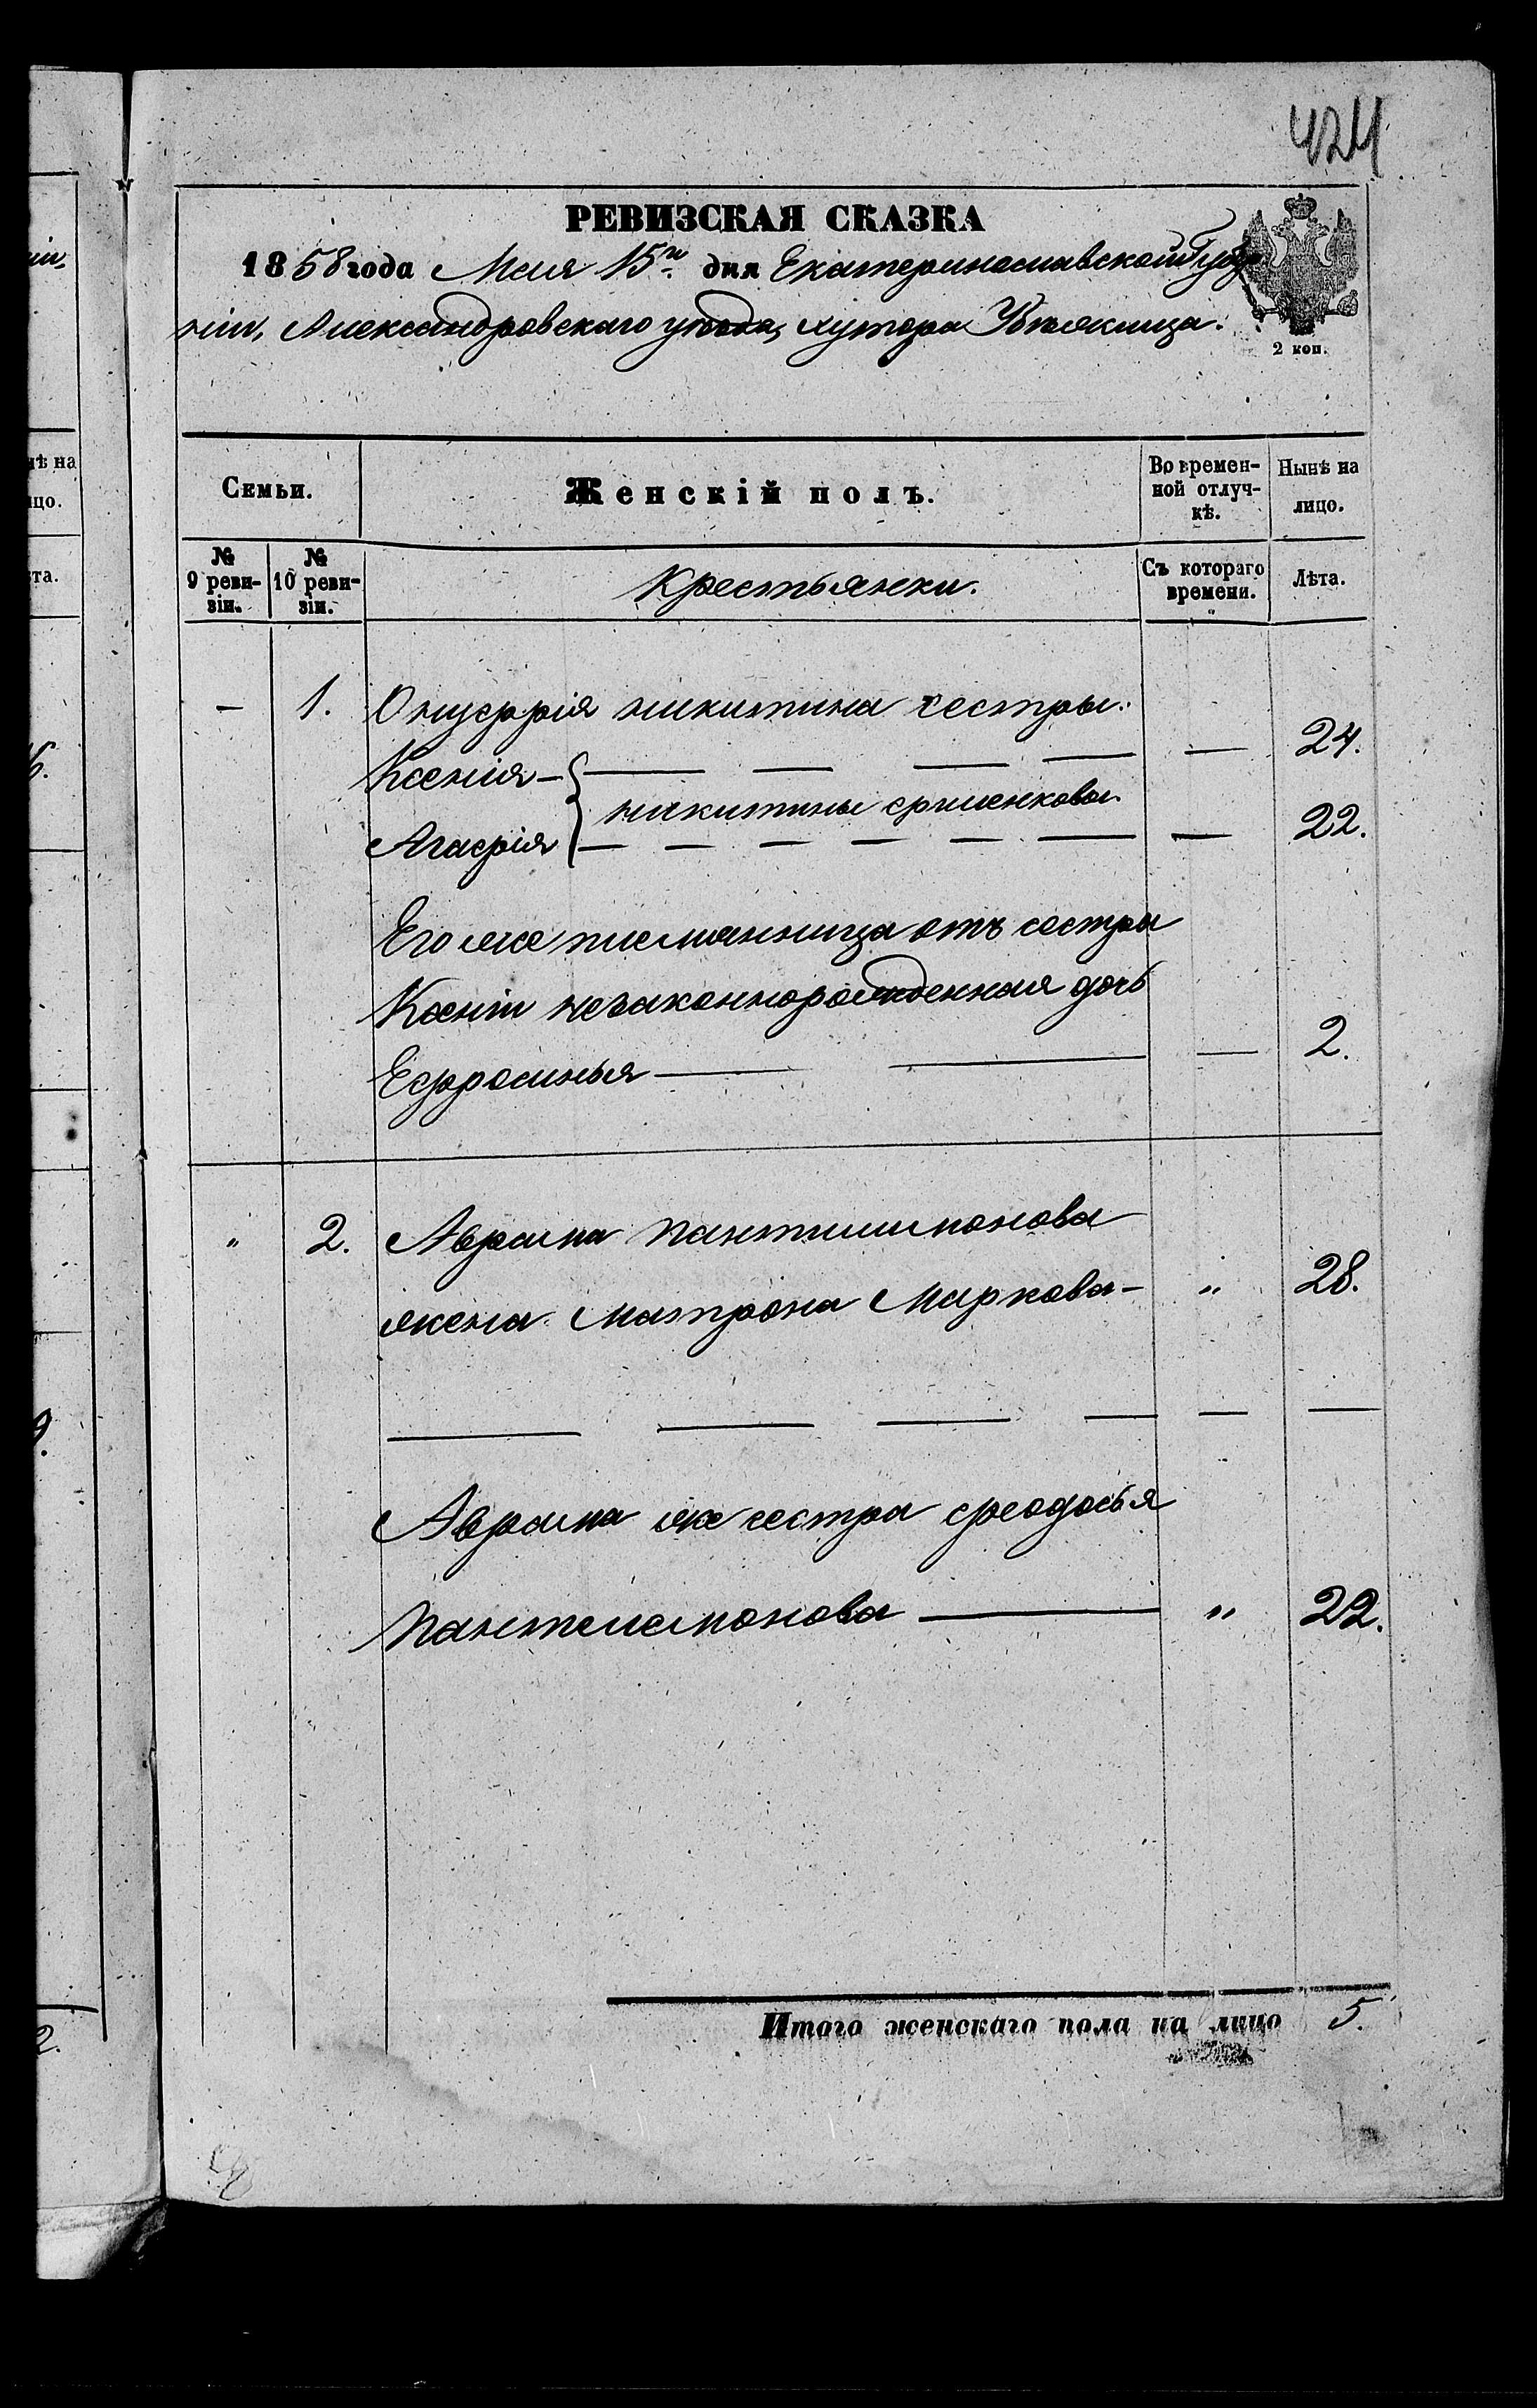 424
РЕВИЗСКАЯ СКАЗКА
1858 года Мая 15го дня Екатеринославской Губер
нiи, Александровскаго уѣзда, хутора
2 коп.
Семьи.
Женскiй полъ.
Во времен-
ной отлуч-
кѣ.
Нынѣ на
лицо.
№
9 реви-
зiи.
№
10 реви-
зiи.
Крестьянки.
Съ котораго
времени.
Лѣта.
— 1. Онуфрiя никитина сестры.
Ксенiя — — — — — — 24.
никитины
Агафiя — — — — — — — 22.
Его же племянница отъ сестры
Ксенiи незаконнорожденная дочь
Ефросинья — — — 2.
„ 2. Аврама пантилимонова
жена матрона Маркова — „ 28.
— — — — — —
Аврама же сестра феодосья
пантелемонова — „ 22.
Итого женскаго пола на лицо 5.